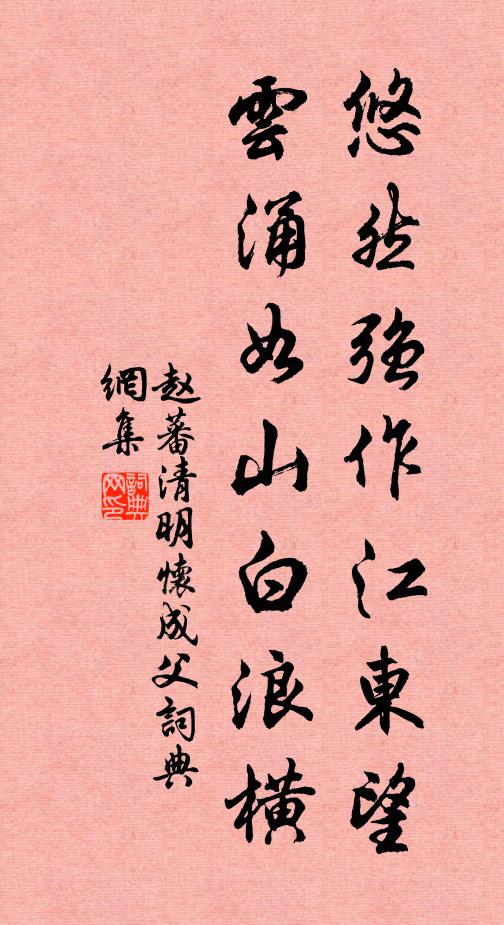 悠然強作江東望
雲涌如山白浪橫
赵蕃清明懷成父詞典
網集
詞典
网印